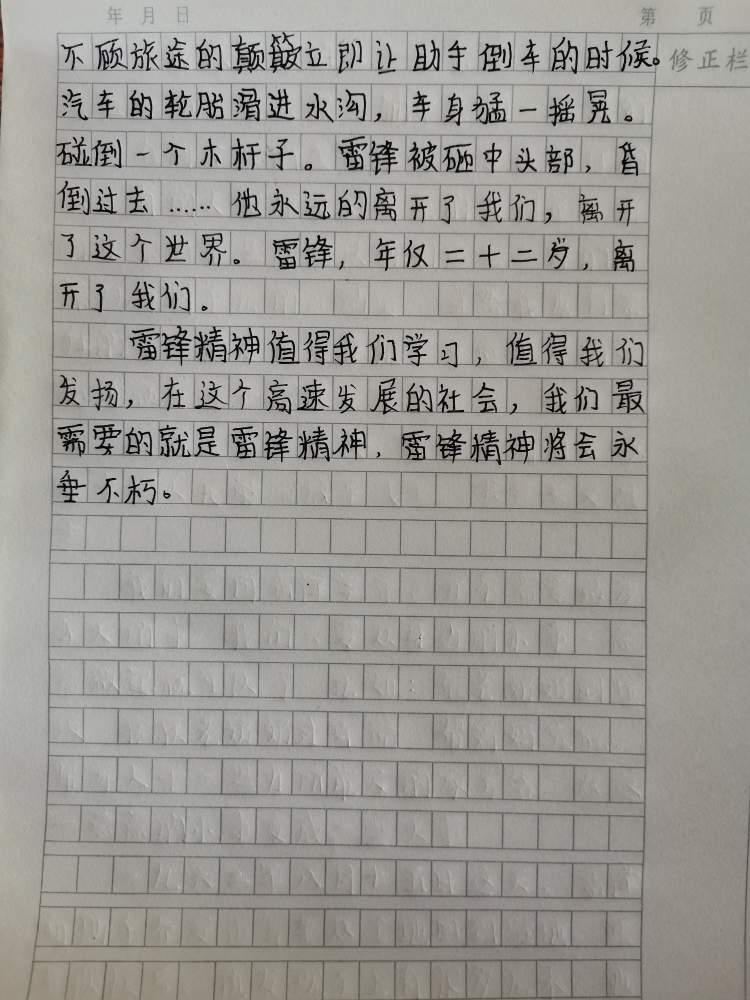 年 月 日
第 页
修正栏
不顾旅途的颠簸立即让助手倒车的时候。
汽车的轮胎滑进水沟，车身猛一摇晃。
碰倒一个木杆子。雷锋被砸中头部，昏
倒过去……他永远的离开了我们，离开
了这个世界。雷锋，年仅二十二岁，离
开了我们。
雷锋精神值得我们学习，值得我们
发扬，在这个高速发展的社会，我们最
需要的就是雷锋精神，雷锋精神将会永
垂不朽。